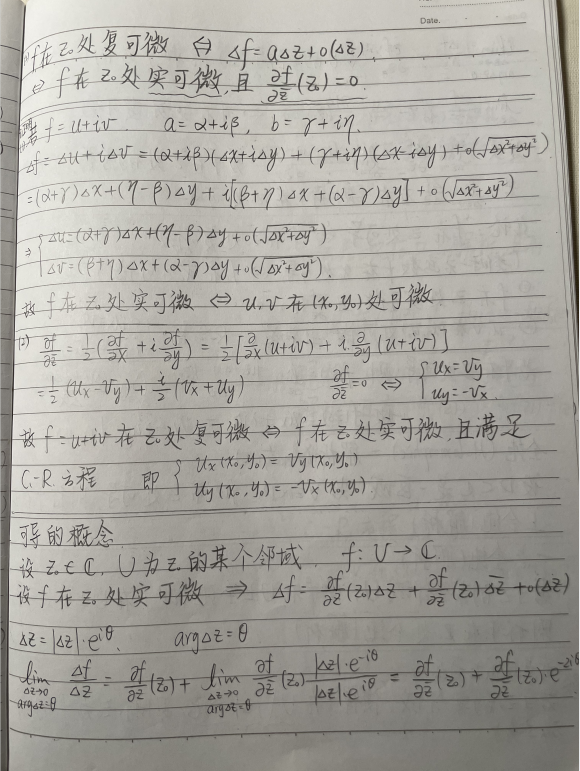 Date.
f在z₀处复可微 ⇔ Δf=aΔz+o(Δz).
⇔ f在z₀处实可微,且 ∂f/∂z̄(z₀)=0.
若f=u+iv. a=α+iβ, b=γ+iη.
Δf=Δu+iΔv=(α+iβ)(Δx+iΔy)+(γ+iη)(Δx-iΔy)+o(√(Δx²+Δy²))
=(α+γ)Δx+(η-β)Δy+i[(β+η)Δx+(α-γ)Δy]+o(√(Δx²+Δy²))
⇒ { Δu=(α+γ)Δx+(η-β)Δy+o(√(Δx²+Δy²))
Δv=(β+η)Δx+(α-γ)Δy+o(√(Δx²+Δy²)).
故f在z₀处实可微 ⇔ u,v在(x₀,y₀)处可微
(2) ∂f/∂z̄=1/2(∂f/∂x+i∂f/∂y)=1/2[∂/∂x(u+iv)+i∂/∂y(u+iv)]
=1/2(uₓ-v_y)+i/2(vₓ+u_y) ∂f/∂z̄=0 ⇔ { uₓ=v_y
u_y=-vₓ.
故f=u+iv在z₀处复可微⇔f在z₀处实可微,且满足
C-R方程 即 { uₓ(x₀,y₀)=v_y(x₀,y₀)
u_y(x₀,y₀)=-vₓ(x₀,y₀)
可导的概念
设z₀∈ℂ,U为z₀的某个邻域. f:U→ℂ.
设f在z₀处实可微 ⇒ Δf=∂f/∂z(z₀)Δz+∂f/∂z̄(z₀)Δz̄+o(Δz)
Δz=|Δz|·e^{iθ}. argΔz=θ
lim_{Δz→0, argΔz=θ} Δf/Δz=∂f/∂z(z₀)+lim_{Δz→0, argΔz=θ} ∂f/∂z̄(z₀)·|Δz|·e^{-iθ}/|Δz|·e^{iθ}=∂f/∂z(z₀)+∂f/∂z̄(z₀)·e^{-2iθ}